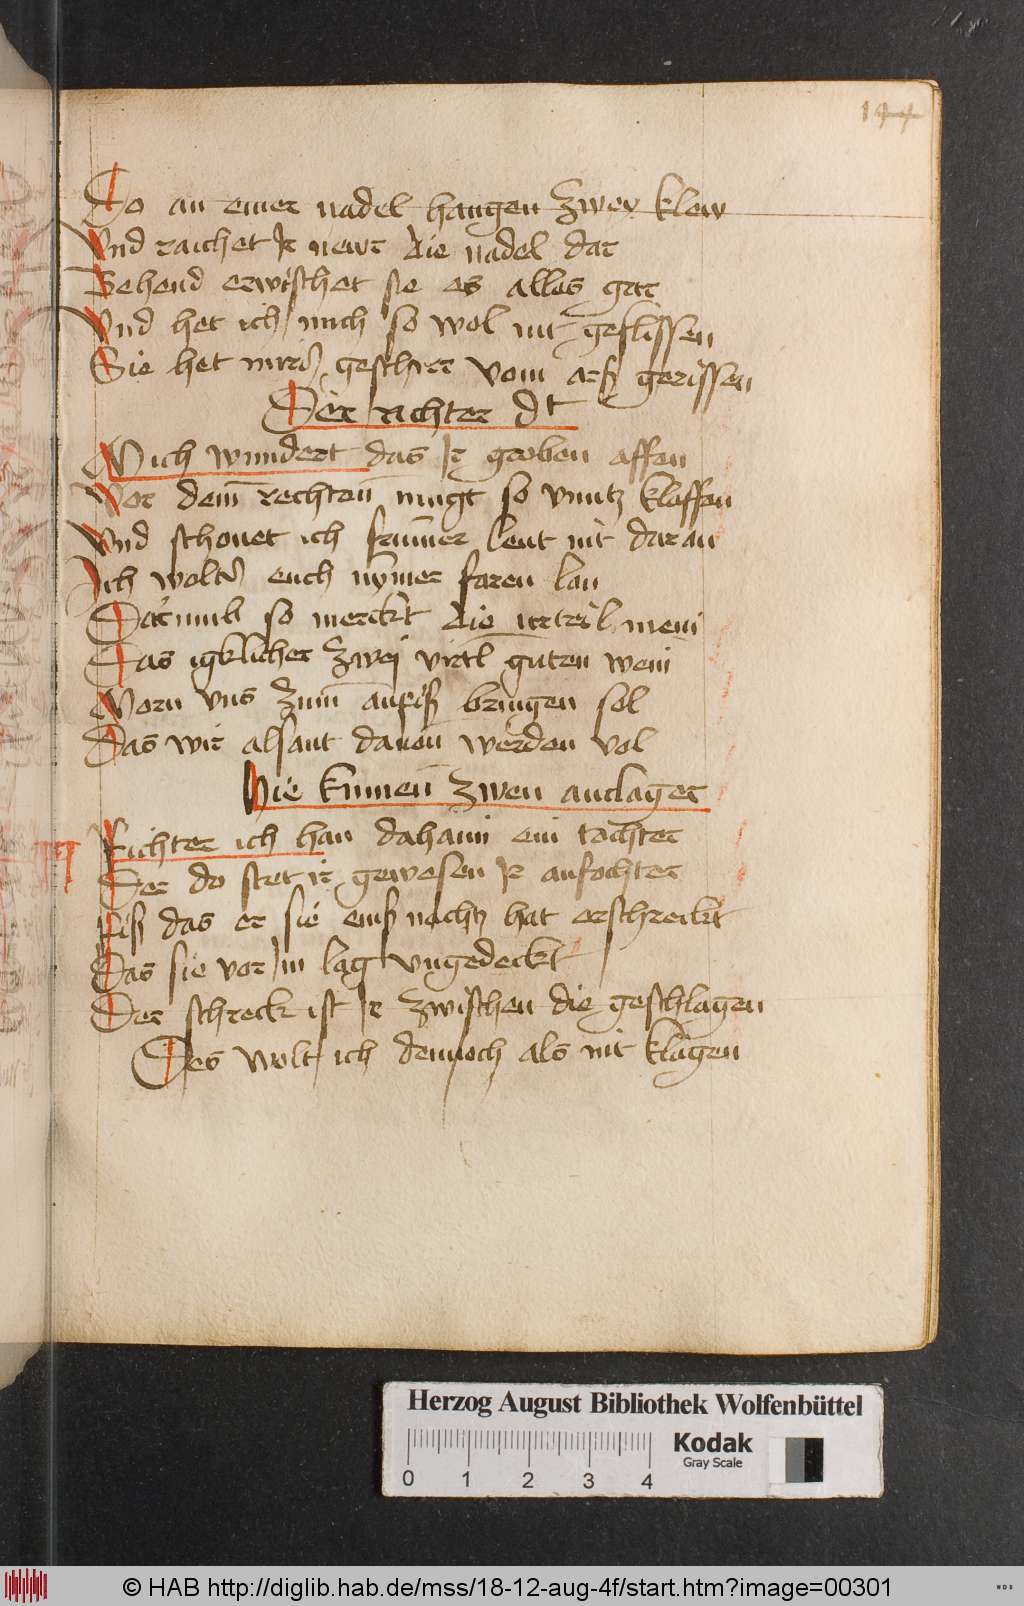 144
Do an einer nadel hangen zwey klew
Vnd raichet Ir newr die nadel dar
Behend erwischet sie es alles gar
Vnd het ich mich so wol nit geflissen
Sie het mirs geschirr vom arß gerissen
Der richter dt
Mich wundert das Ir groben affen
Vor dem̄ rechten̄ mugt so vnnutz klaffen
Vnd schonet ich frum̄er leut nit daran
Ich wolts euch nym̄er faren lan
Darumb so merckt die urteil mein
Das igklicher zwej virtl guten wein
Morn vns zum̄ anpiß bringen sol
Das wir alsant dauon̄ werden vol
Die kumen̄ zwen anclager
Richter ich han dahaim ein tochter
Der do stet ir gewesen Ir anfochter
Piß das er sie einß nachtz hat erschreckt
Das sie vor Im lag vngedeckt
Der schreck ist Ir zwischen die geschlagen
Des wolt ich dennoch als nit klagen
Herzog August Bibliothek Wolfenbüttel
Kodak
Gray Scale
0 1 2 3 4
© HAB http://diglib.hab.de/mss/18-12-aug-4f/start.htm?image=00301